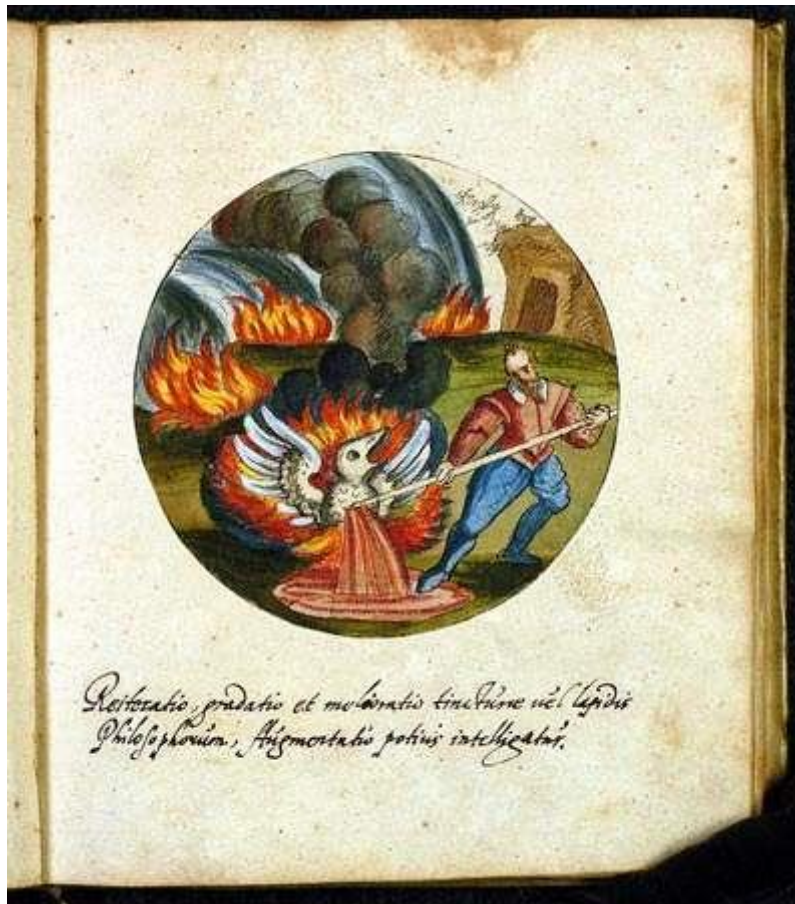 Reiteratio, gradatio et melioratio tincturæ vel lapidis
Philosophorum, Augmentatio potius intelligatur.